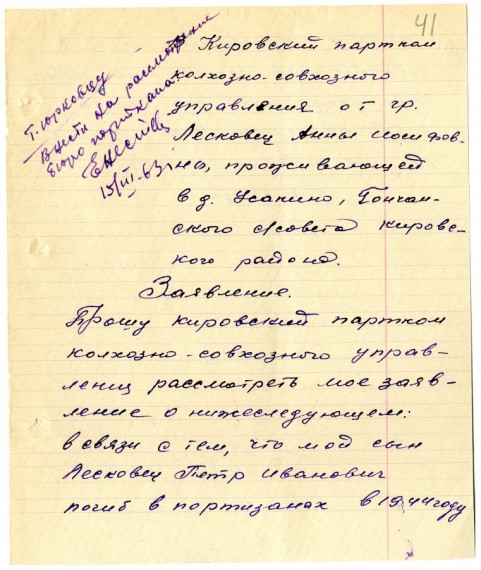 41
т. Юрковцу
Внести на рассмотрение
бюро парткома.
15/III-63
Кировский партком
колхозно-совхозного
управления от гр.
Лесковец Анны Иосифов-
ны, проживающей
в д. Усакино, Гончан-
ского с/совета Кировс-
кого района.
Заявление.
Прошу кировский партком
колхозно-совхозного управ-
лениц рассмотреть мое заяв-
ление о нижеследующем:
в связи с тем, что мой сын
Лесковец Петр Иванович
погиб в портизанах в 1944 году